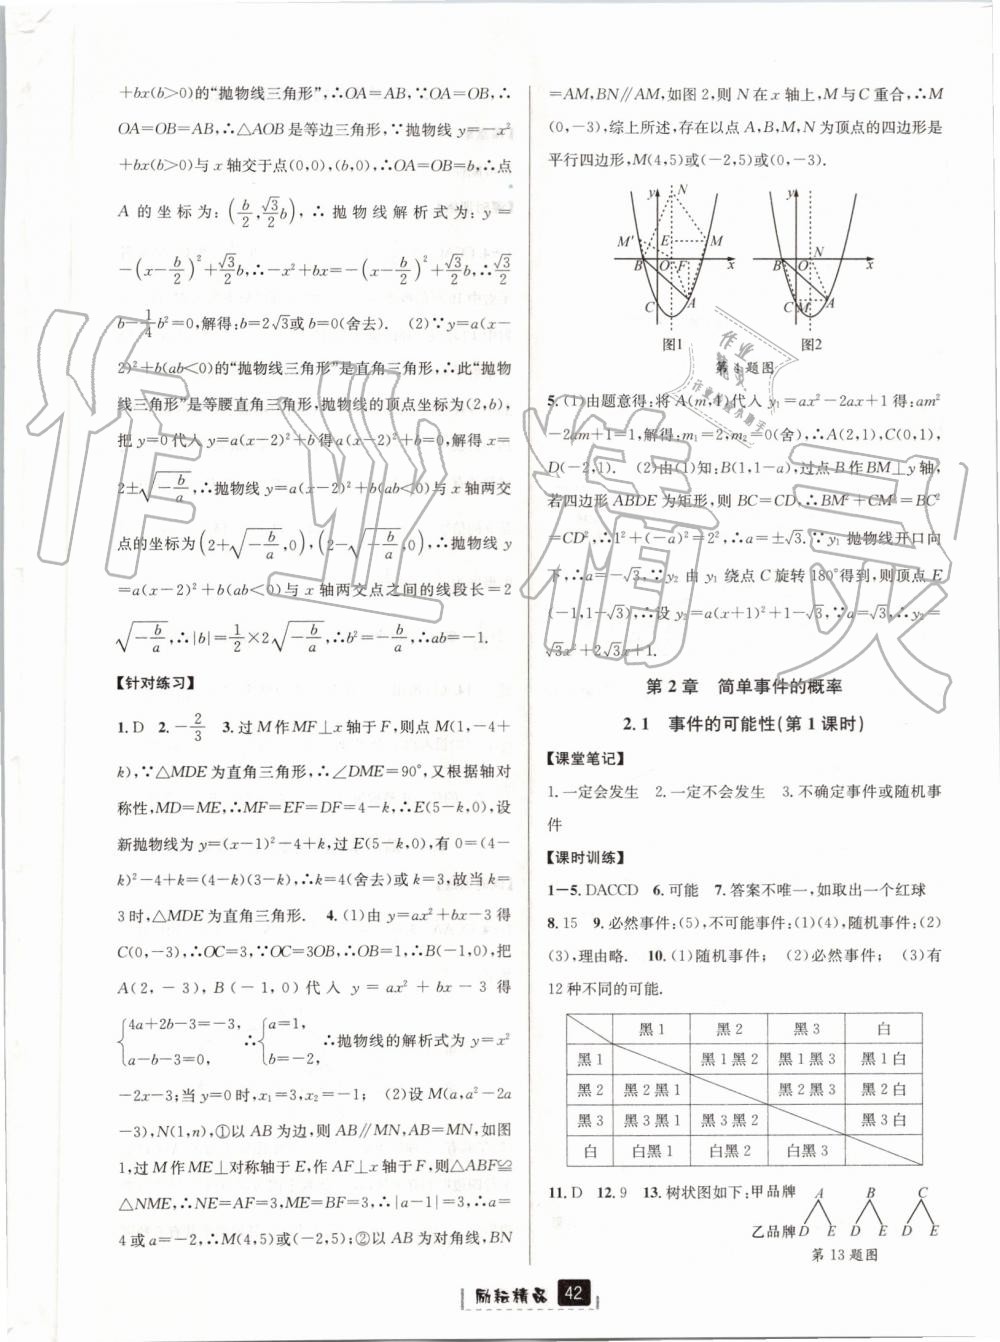 +bx(b>0)的“抛物线三角形”,∴OA=AB,∵OA=OB,∴
OA=OB=AB,∴△AOB是等边三角形,∵抛物线 y=-x²
+bx(b>0)与 x 轴交于点(0,0),(b,0),∴OA=OB=b,∴点
A 的坐标为:(b/2,√3/2 b),∴抛物线解析式为:y=
-(x-b/2)²+√3/2 b,∴-x²+bx=-(x-b/2)²+√3/2 b,∴√3/2
b-1/4 b²=0,解得:b=2√3或 b=0(舍去). (2)∵y=a(x-
2)²+b(ab<0)的“抛物线三角形”是直角三角形,∴此“抛物
线三角形”是等腰直角三角形,抛物线的顶点坐标为(2,b),
把 y=0代入 y=a(x-2)²+b得 a(x-2)²+b=0,解得 x=
2±√(-b/a),∴抛物线 y=a(x-2)²+b(ab<0)与 x 轴两交
点的坐标为(2+√(-b/a),0),(2-√(-b/a),0),∴抛物线 y
=a(x-2)²+b(ab<0)与 x 轴两交点之间的线段长=2
√(-b/a),∴|b|=1/2×2√(-b/a),∴b²=-b/a,∴ab=-1.
【针对练习】
1.D 2.-2/3 3.过 M 作 MF⊥x 轴于 F,则点 M(1,-4+
k),∵△MDE 为直角三角形,∴∠DME=90°,又根据轴对
称性,MD=ME,∴MF=EF=DF=4-k,∴E(5-k,0),设
新抛物线为 y=(x-1)²-4+k,过 E(5-k,0),有 0=(4-
k)²-4+k=(4-k)(3-k),∴k=4(舍去)或 k=3,故当 k=
3时,△MDE 为直角三角形. 4.(1)由 y=ax²+bx-3 得
C(0,-3),∴OC=3,∵OC=3OB,∴OB=1,∴B(-1,0),把
A(2,-3),B(-1,0)代入 y=ax²+bx-3 得
{4a+2b-3=-3, a-b-3=0, ∴{a=1, b=-2, ∴抛物线的解析式为 y=x²
-2x-3;当 y=0时,x₁=3,x₂=-1; (2)设 M(a,a²-2a
-3),N(1,n),①以 AB 为边,则 AB∥MN,AB=MN,如图
1,过 M 作 ME⊥对称轴于 E,作 AF⊥x 轴于 F,则△ABF≌
△NME,∴NE=AF=3,ME=BF=3,∴|a-1|=3,∴a=
4或 a=-2,∴M(4,5)或(-2,5);②以 AB 为对角线,BN
=AM,BN∥AM,如图 2,则 N 在 x 轴上,M 与 C 重合,∴M
(0,-3),综上所述,存在以点 A,B,M,N 为顶点的四边形是
平行四边形,M(4,5)或(-2,5)或(0,-3).
y N M′ E M B O F x C A
图1
y N B O x C M A
图2
第 4 题图
5.(1)由题意得:将 A(m,4)代入 y₁=ax²-2ax+1 得:am²
-2am+1=4,解得:m₁=2,m₂=0(舍),∴A(2,1),C(0,1),
D(-2,1). (2)由(1)知:B(1,1-a),过点 B 作 BM⊥y 轴,
若四边形 ABDE 为矩形,则 BC=CD,∴BM²+CM²=BC²
=CD²,∴1²+(-a)²=2²,∴a=±√3.∵y₁ 抛物线开口向
下,∴a=-√3,∵y₂ 由 y₁ 绕点 C 旋转 180°得到,则顶点 E
(-1,1-√3),∴设 y₂=a(x+1)²+1-√3,∵a=√3,∴y₂=
√3x²+2√3x+1.
第 2 章 简单事件的概率
2.1 事件的可能性(第 1 课时)
【课堂笔记】
1.一定会发生 2.一定不会发生 3.不确定事件或随机事
件
【课时训练】
1-5.DACCD 6.可能 7.答案不唯一,如取出一个红球
8.15 9.必然事件:(5),不可能事件:(1)(4),随机事件:(2)
(3),理由略. 10.(1)随机事件; (2)必然事件; (3)有
12 种不同的可能.
黑 1 黑 2 黑 3 白
黑 1 黑 1 黑 2 黑 1 黑 3 黑 1 白
黑 2 黑 2 黑 1 黑 2 黑 3 黑 2 白
黑 3 黑 3 黑 1 黑 3 黑 2 黑 3 白
白 白黑 1 白黑 2 白黑 3
11.D 12.9 13.树状图如下:甲品牌 A B C
乙品牌 D E D E D E
第 13 题图
励耘精品 42
作业精灵